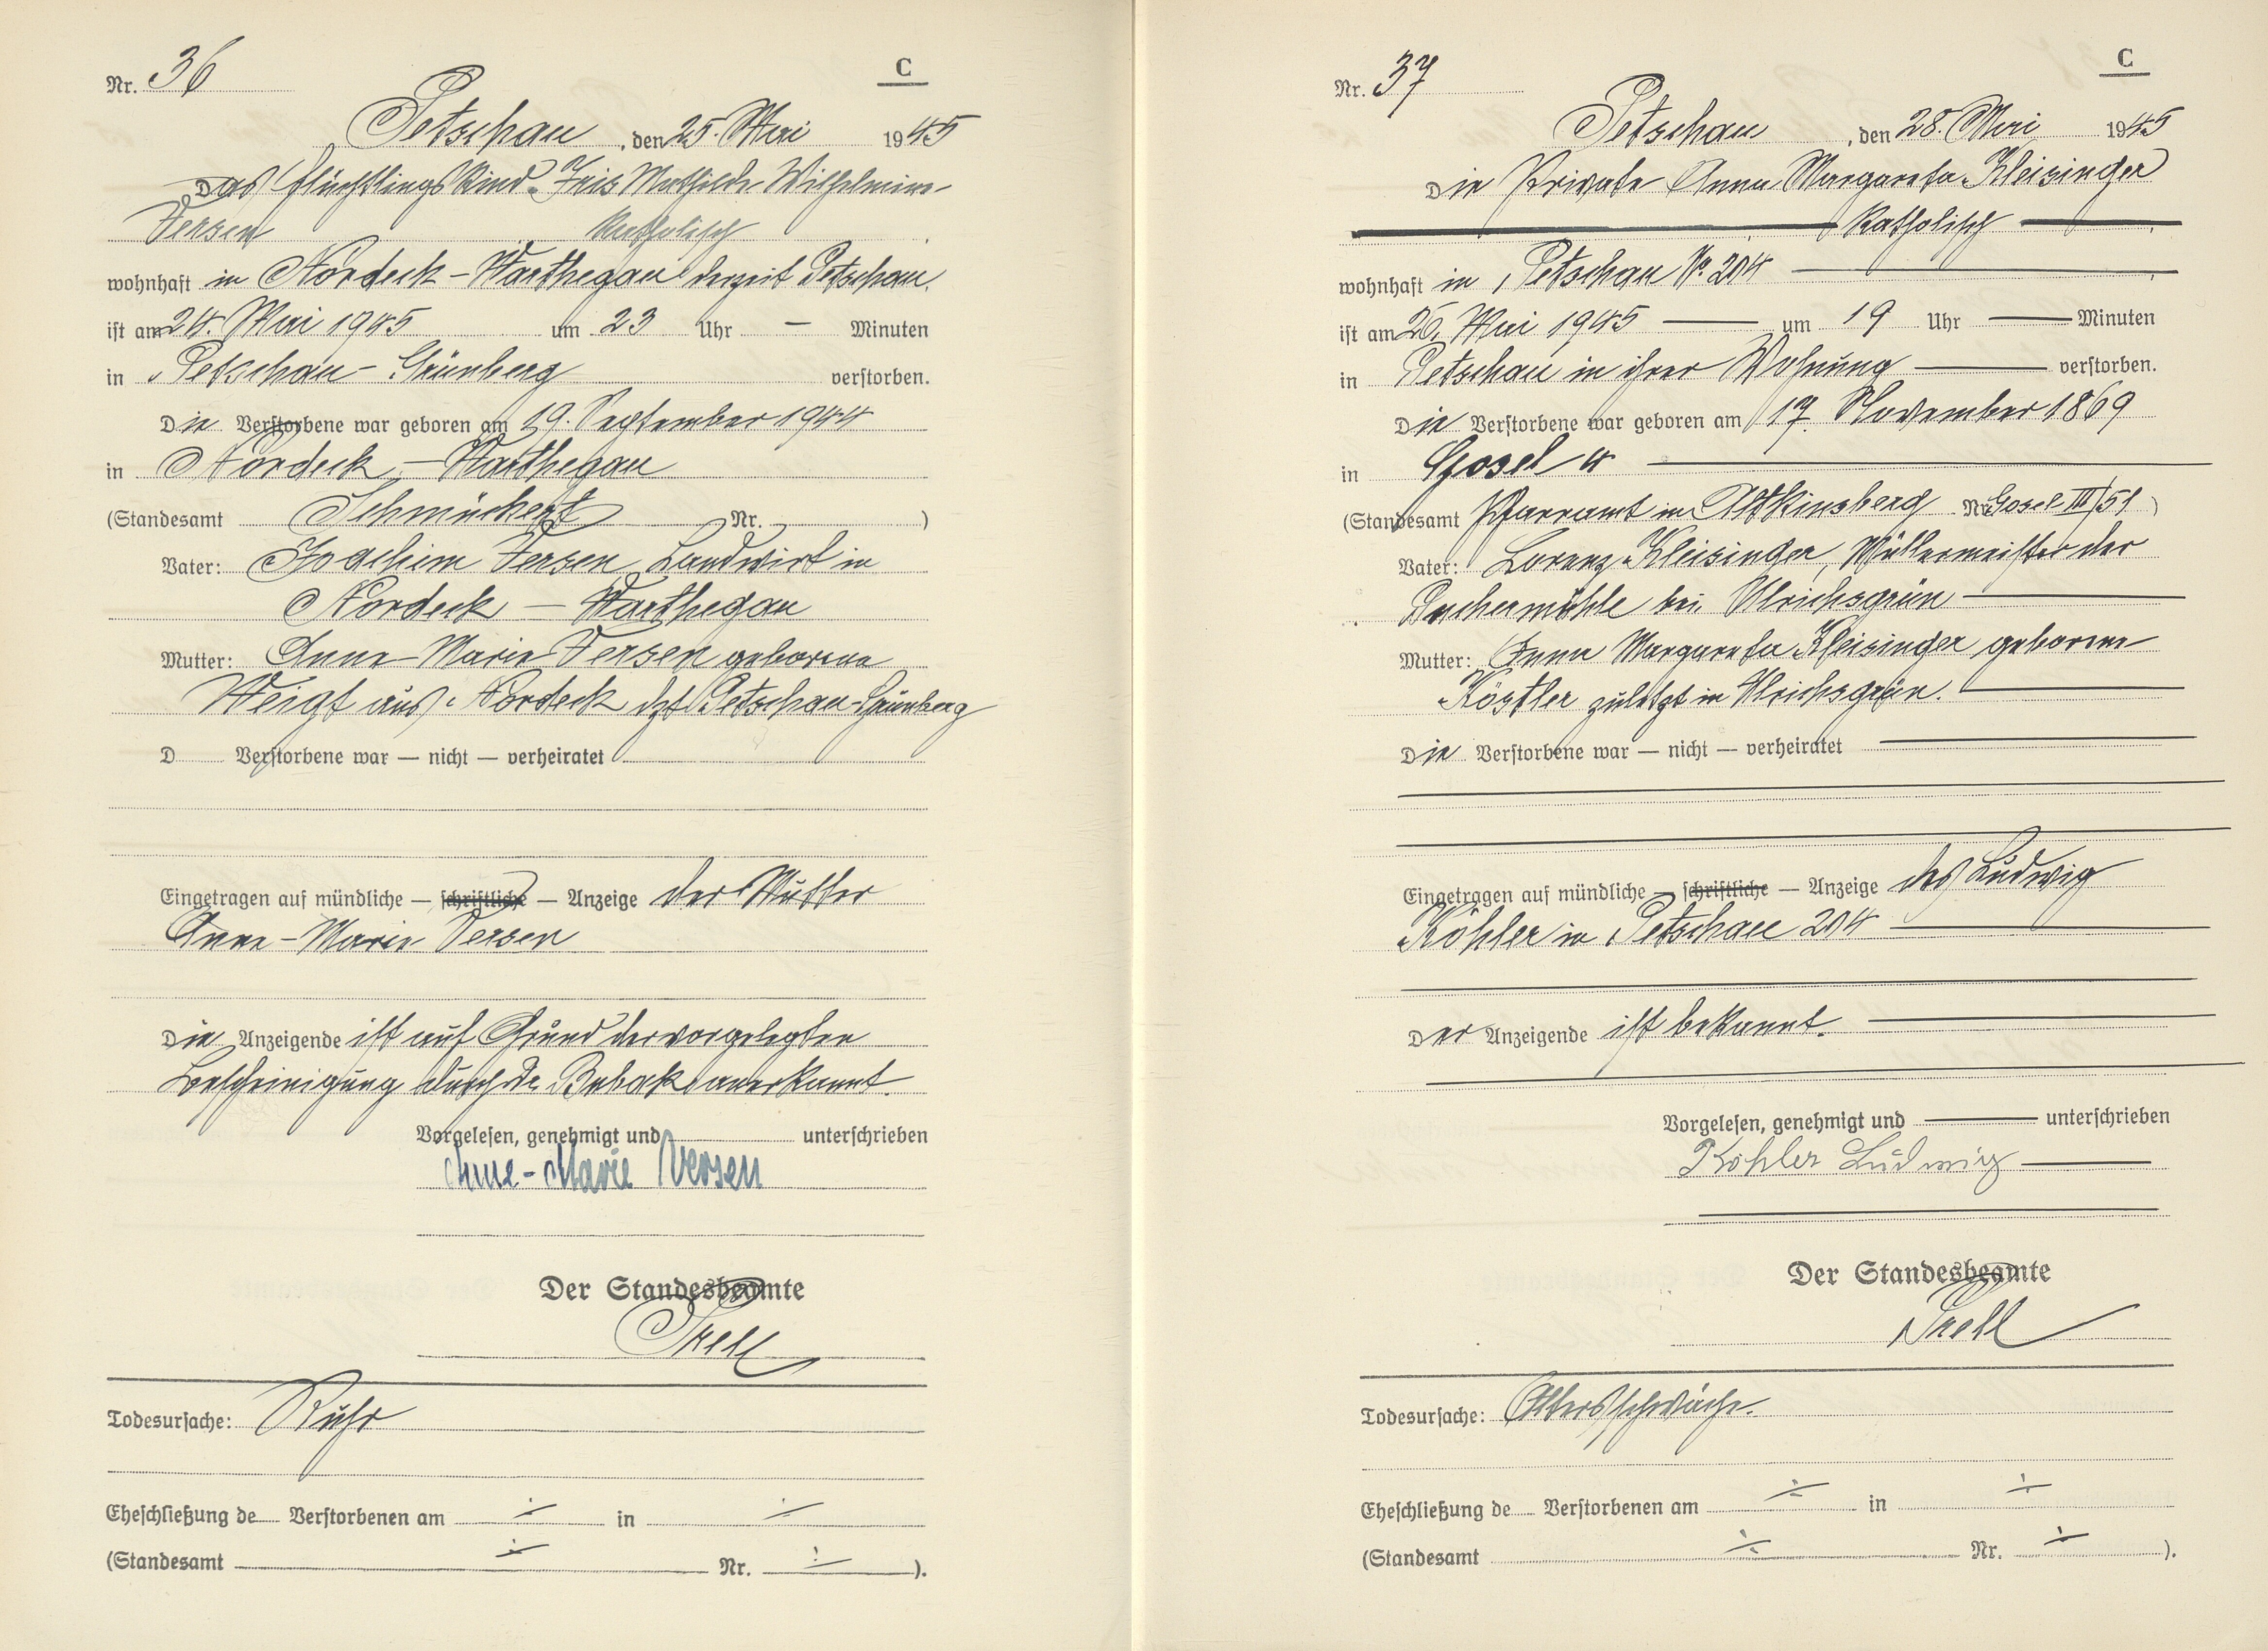 Nr. 36
C
Petschau, den 25. Mai 1945
Das Flüchtlingskind Iris Mathilde Wilhelmine
Versen Katholisch
wohnhaft in Nordeck - Warthegau derzeit Petschau.
ist am 24. Mai 1945 um 23 Uhr — Minuten
in Petschau - Grünberg verstorben.
Die Verstorbene war geboren am 19. September 1944
in Nordeck - Warthegau
(Standesamt Schmückert Nr. )
Vater: Joachim Versen Landwirt in
Nordeck — Warthegau
Mutter: Anne-Marie Versen geborene
Weigt aus Nordeck dzt Petschau-Grünberg
D Verstorbene war — nicht — verheiratet
Eingetragen auf mündliche — schriftliche — Anzeige der Mutter
Anne-Marie Versen
Die Anzeigende ist auf Grund der vorgelegten
Bescheinigung durch anerkannt.
Vorgelesen, genehmigt und unterschrieben
Anne-Marie Versen
Der Standesbeamte
Todesursache: Ruhr
Eheschließung de Verstorbenen am ÷ in ÷
(Standesamt ÷ Nr. ÷ ).
Nr. 37
C
Petschau, den 28. Mai 1945
Die Private Anna Margareta Kleisinger
Katholisch
wohnhaft in Petschau Nr. 204
ist am 26. Mai 1945 — um 19 Uhr — Minuten
in Petschau in ihrer Wohnung — verstorben.
Die Verstorbene war geboren am 17. November 1869
in Gosel 4
(Standesamt Pfarramt in Altkinsberg Nr. Gosel III/51)
Vater: Lorenz Kleisinger, Müllermeister der
bei Ulrichsgrün
Mutter: Anna Margareta Kleisinger geborene
Köstler zuletzt in Ulrichsgrün.
Die Verstorbene war — nicht — verheiratet
Eingetragen auf mündliche — schriftliche — Anzeige des Ludwig
Köhler in Petschau 204
Der Anzeigende ist bekannt.
Vorgelesen, genehmigt und — unterschrieben
Köhler Ludwig
Der Standesbeamte
Todesursache: Altersschwäche.
Eheschließung de Verstorbenen am ÷ in ÷
(Standesamt ÷ Nr. ÷ ).